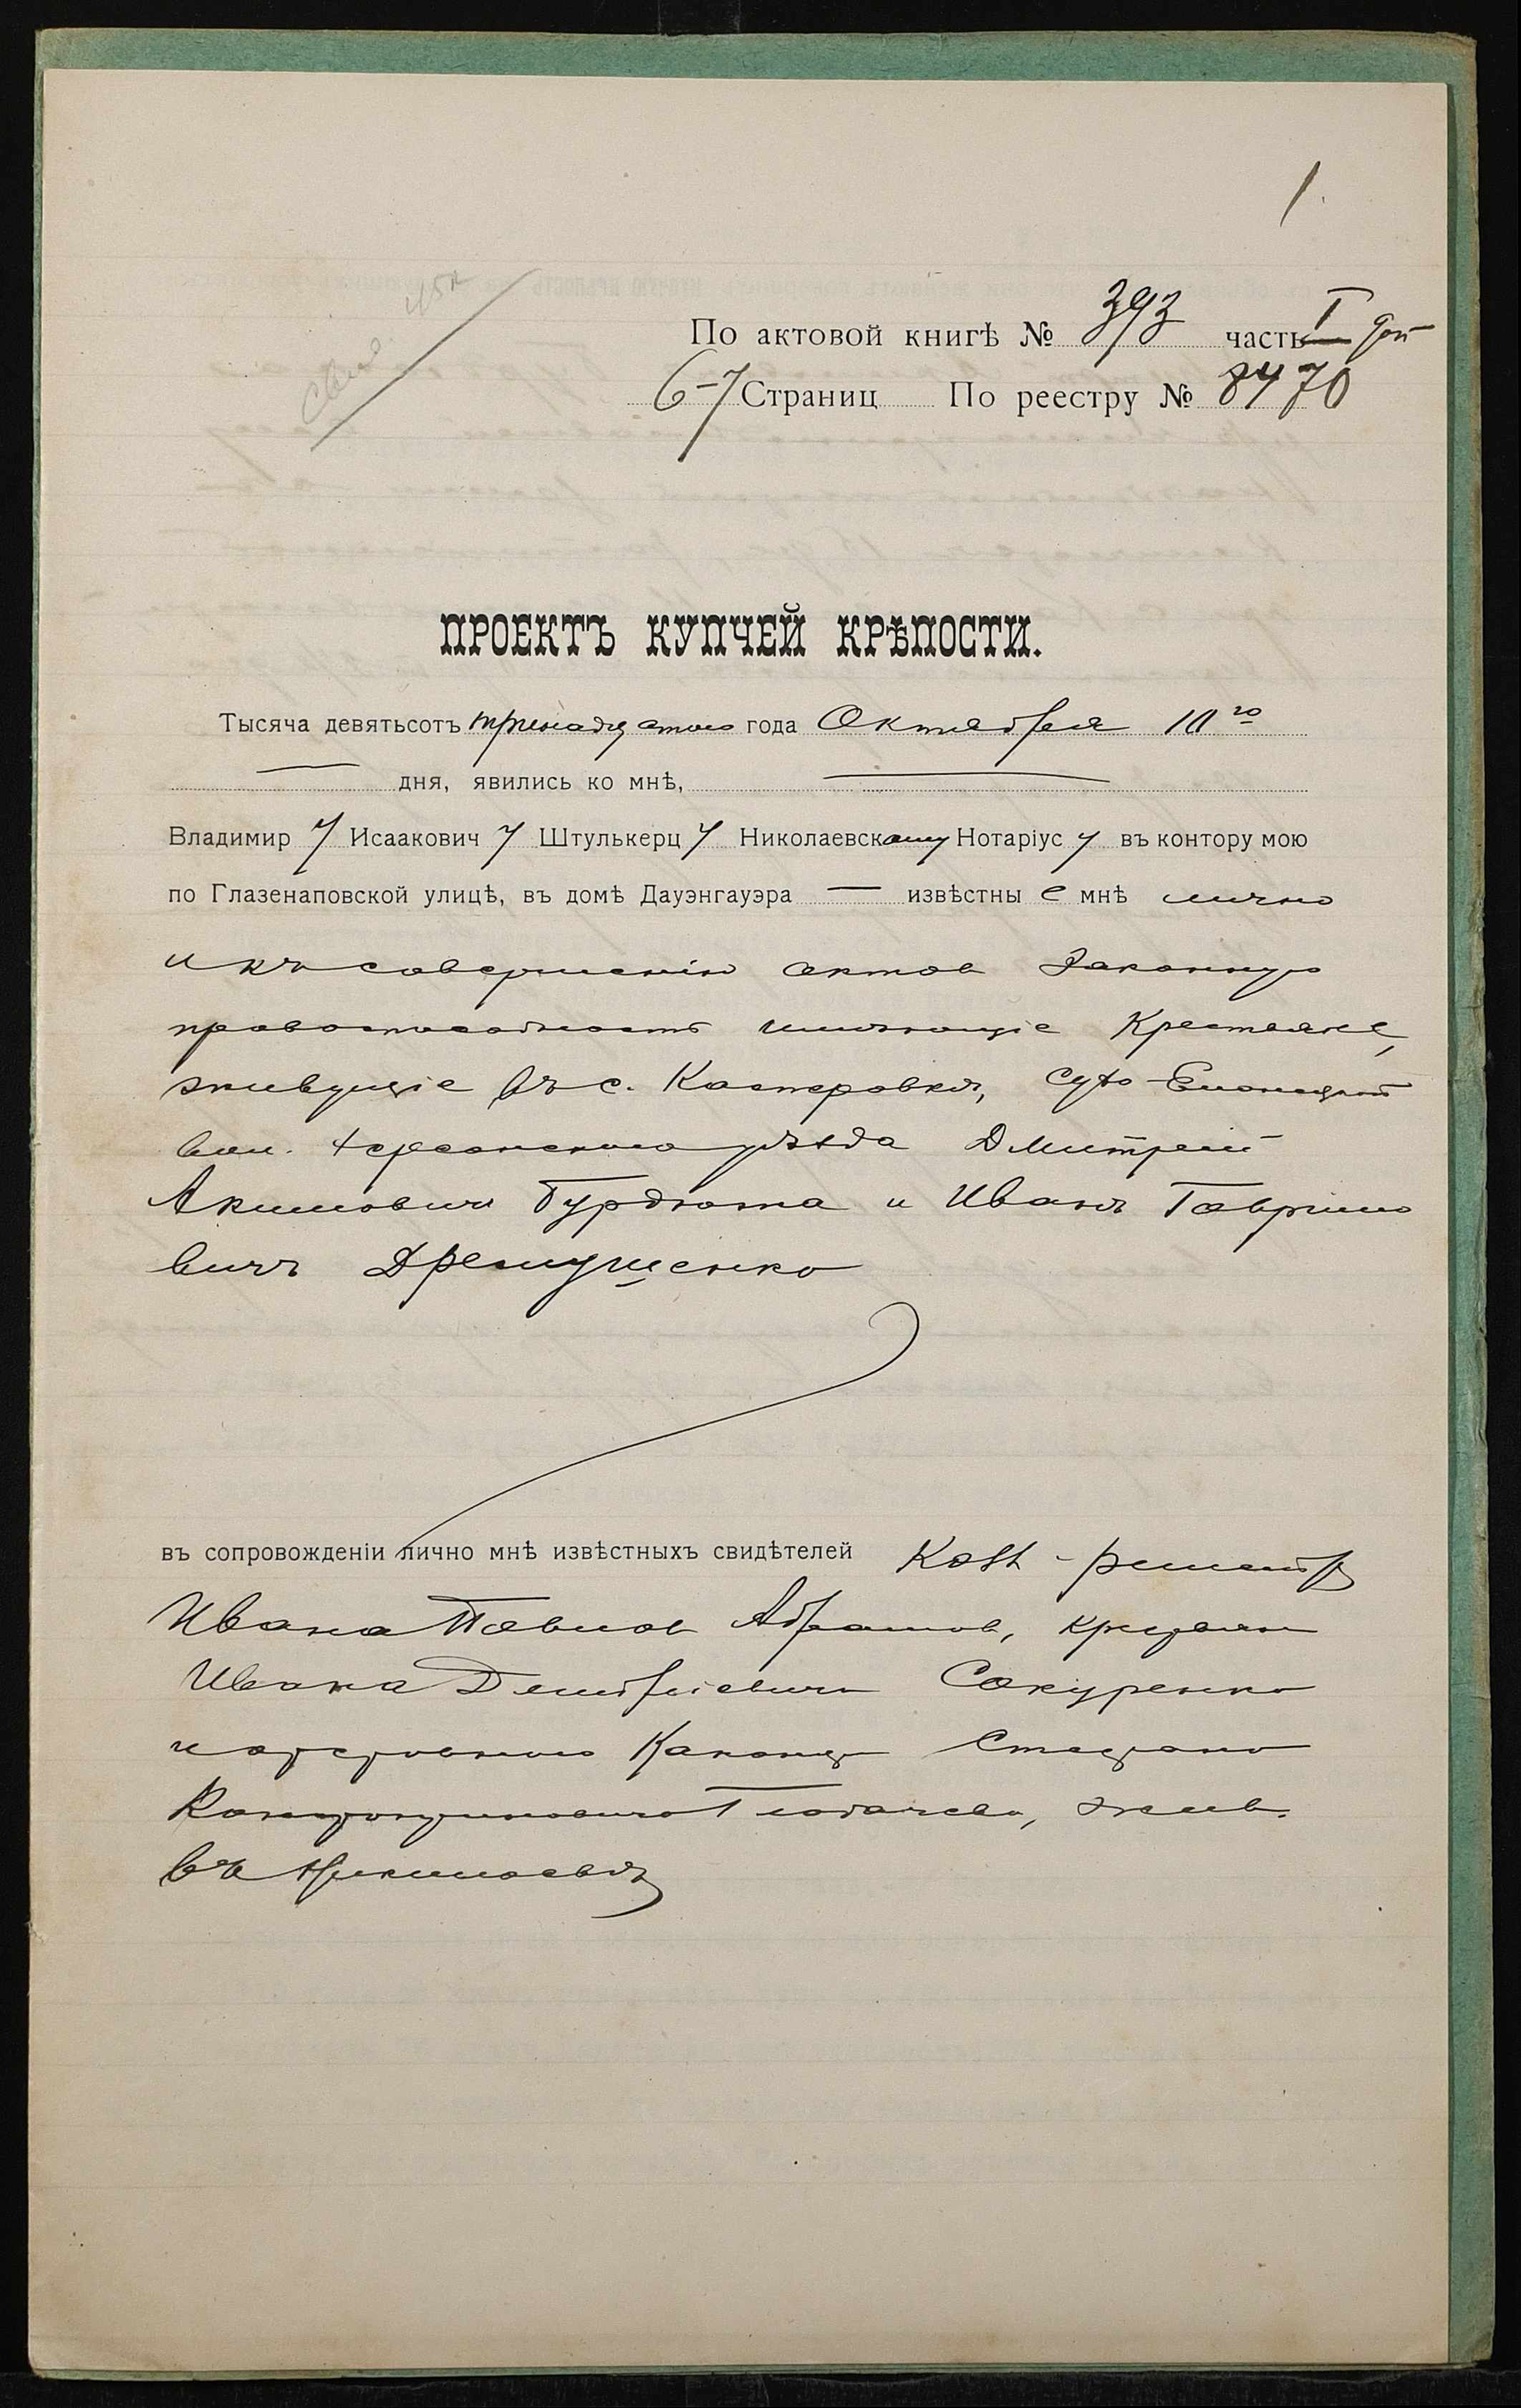 1.
По актовой книгѣ № 393 часть I
6-7 Страниц По реестру № 8470
ПРОЕКТЪ КУПЧЕЙ КРѢПОСТИ.
Тысяча девятьсотъ тринадцатого года Октября 10го
дня, явились ко мнѣ,
Владимир у Исаакович у Штулькерц у Николаевскому Нотаріус у въ контору мою
по Глазенаповской улицѣ, въ домѣ Дауэнгауэра — извѣстны е мнѣ лично
и къ совершенію актов законную
правоспособность имѣющіе Крестьяне,
живущіе въ с. Касперовкѣ,
вол. Херсонского уѣзда Дмитрій
Акимович Бурдюжа и Иванъ Гаврило
вичъ Дремущенко
въ сопровожденіи лично мнѣ извѣстныхъ свидѣтелей
Ивана Павлов Абрамов,
Ивана Дмитріевича Сакуренко
Степана
жив.
въ Николаевѣ